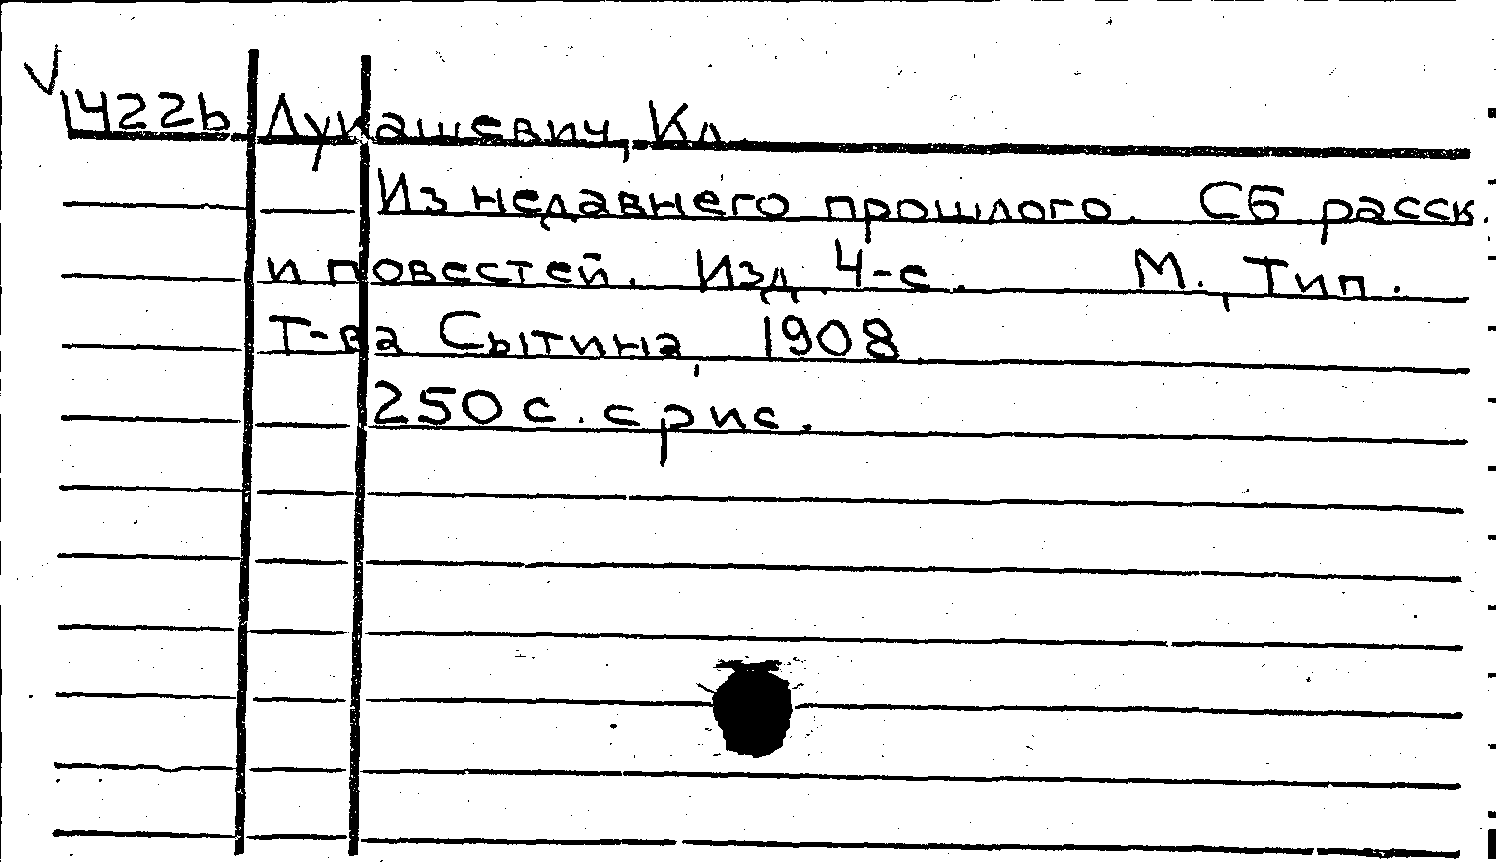 1422b Лукашевич, Кл.
Из недавнего прошлого. Сб. расск.
и повестей. Изд. 4-е. М., Тип.
Т-ва Сытина, 1908
250 с. с рис.